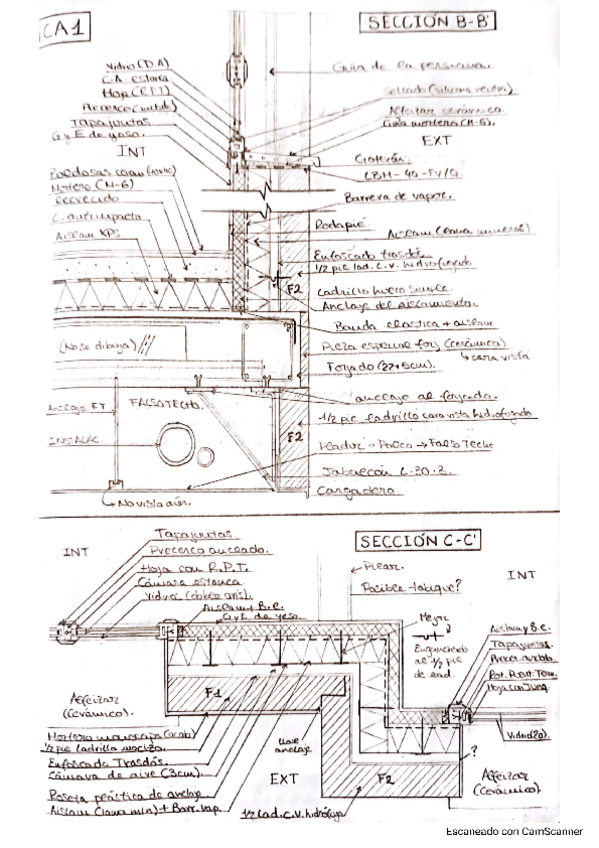 CA1
SECCIÓN B-B'
Vidrio (D.A)
C.A estanca
Hoja (R.P.T)
Tapajuntas
G y E de yeso.
INT
Guía de la persiana.
Sellado (silicona neutra)
Alfeizar cerámico.
EXT
Goterón.
LBM-40-FV/G.
Barrera de vapor.
Mortero (M-6)
Recrecido
L. antiimpacto
Aislam XPS
Rodapié
Aislam (lana mineral)
Enfoscado trasdós.
1/2 pie lad. c.v. hidrofugado
F2
Ladrillo hueco simple.
Anclaje del aislamiento.
Banda elastica + aislam
Pieza especial forj (cerámica)
cara vista
Forjado (22+5cm).
(No se dibuja)
anclaje al forjado.
Anclaje FT
FALSO TECHO.
1/2 pie ladrillo cara vista hidrofugado
F2
INSTALAC.
Pladur o Placo → Falso Techo
Jabalcón L.30.3
Cargadero
No visto aún.
SECCIÓN C-C'
INT
Tapajuntas
Precerco anclado.
Hoja con R.P.T.
Cámara estanca
Vidrios (doble ais).
Aislam y B.E.
G y E de yeso.
Pilar.
Posible tabique?
INT
Mejor
Enganchado
al 1/2 pie
de lad.
Aislam y B.E.
Tapajuntas.
Precer. anclado
Hoja con Junq.
Vidrio (2a).
Alfeizar
(Cerámico).
F1
1/2 pie ladrillo macizo.
Enfoscado Trasdós.
Cámara de aire (3cm).
Aislam (lana min) + Barr. vap.
llave
anclaje
EXT
F2
?
Alfeizar
(Cerámico).
1/2 lad. c.v. hidrófugo
Escaneado con CamScanner